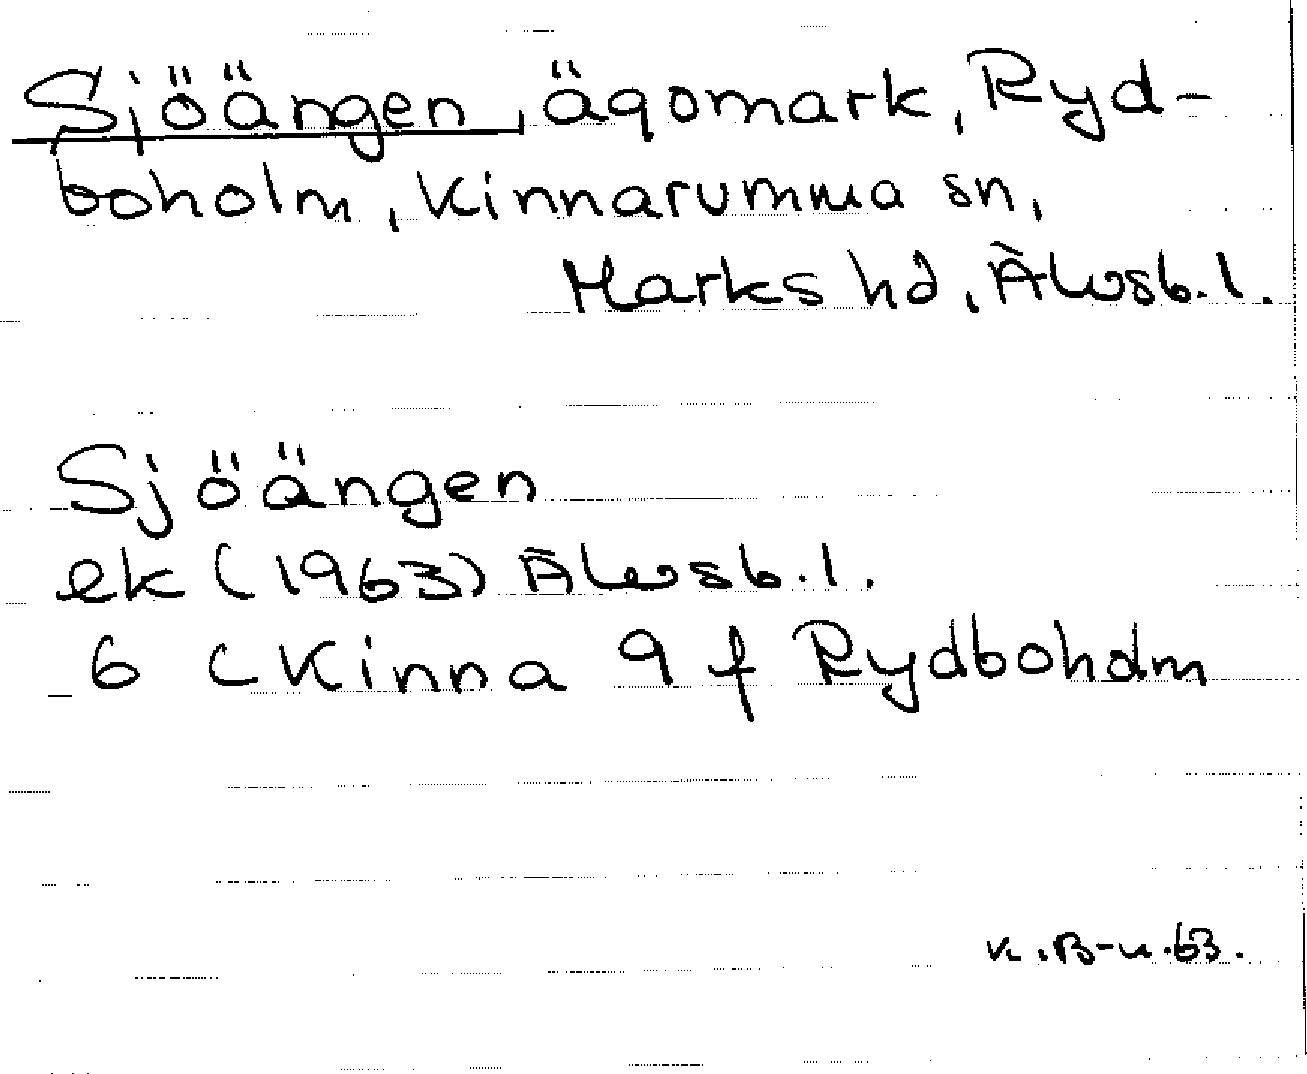 Sjöängen, ägomark, Ryd-
boholm, Kinnarumma sn,
Marks hd, Älvsb. l.
Sjöängen
ek (1963) Älvsb. l.
6 C Kinna 9 f Rydboholm
K. B-n. 63.